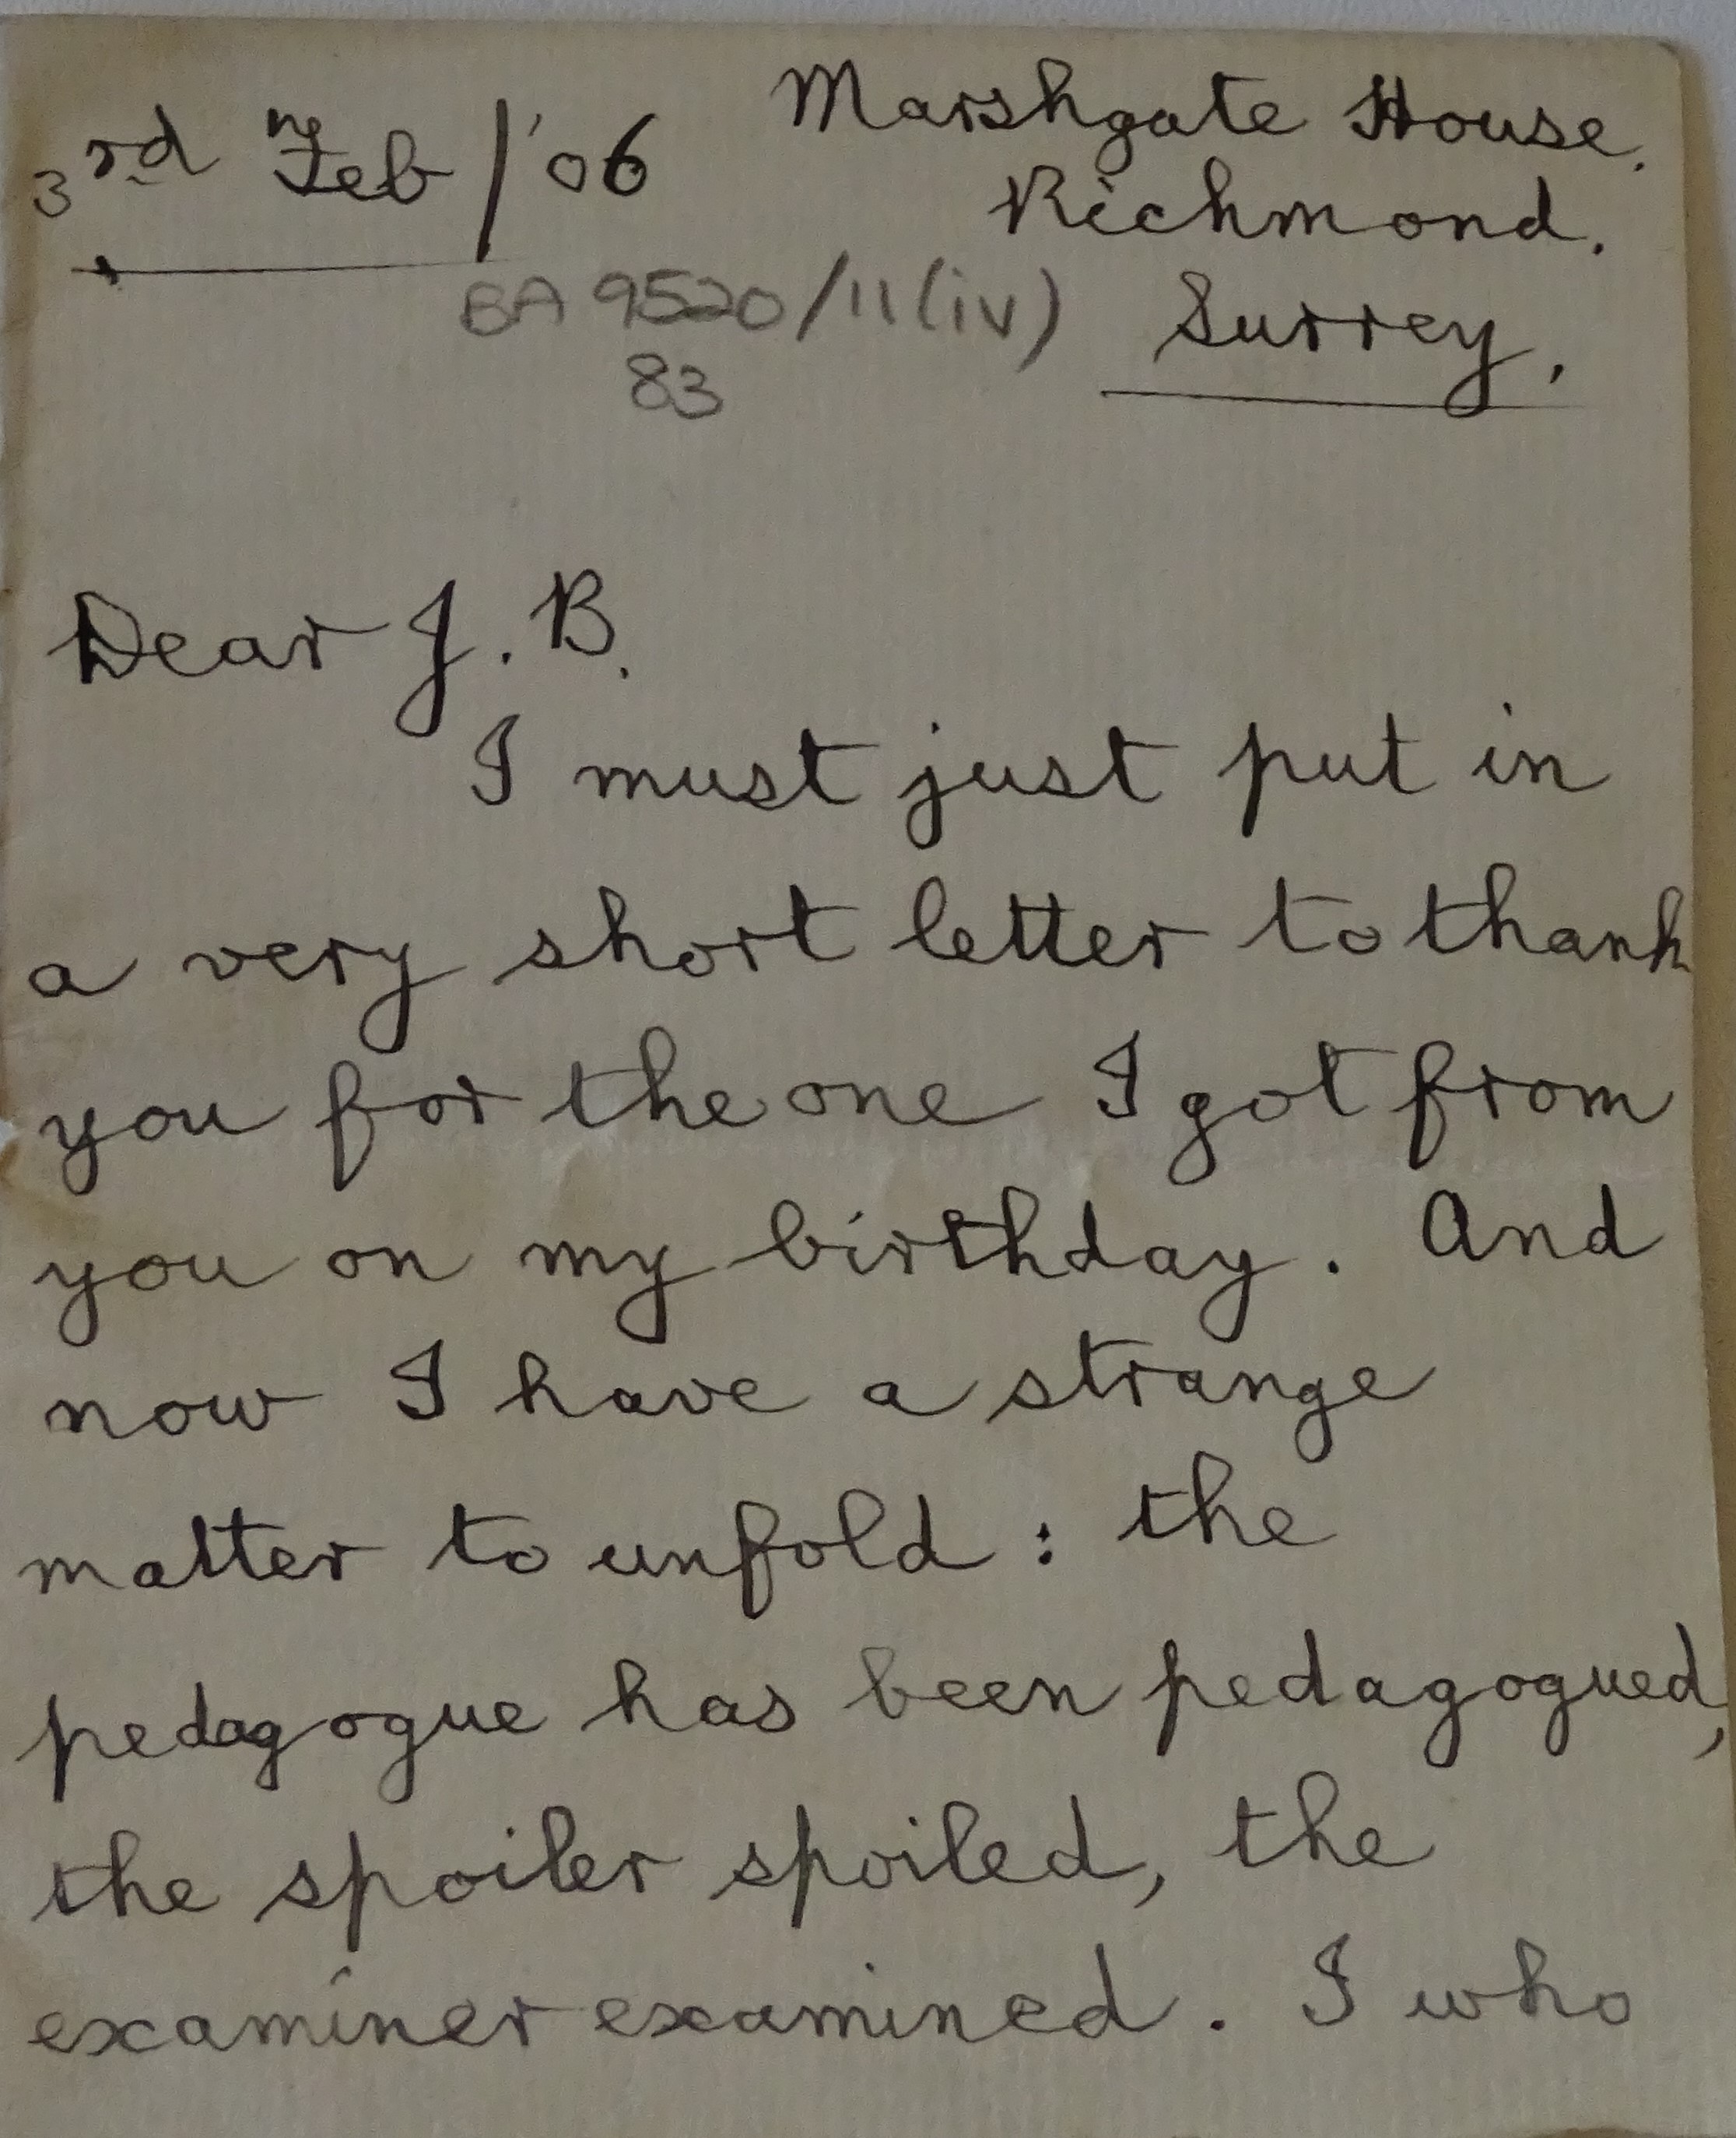 3rd Feb/'06
Marshgate House.
Richmond.
Surrey,
BA 9520/11(iv)
83
Dear J. B.
I must just put in
a very short letter to thank
you for the one I got from
you on my birthday. And
now I have a strange
matter to unfold : the
pedagogue has been pedagogued,
the spoiler spoiled, the
examiner examined. I who